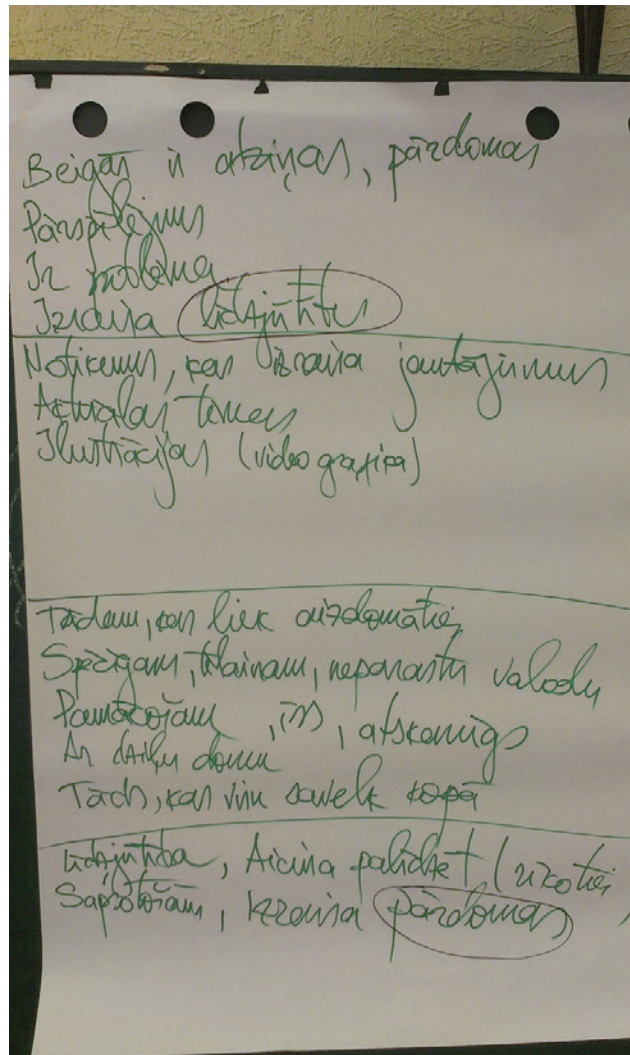 Beigās ir atziņas, pārdomas
Pārspīlējums
Ir problēma
Izraisa līdzjūtību
Notikums, kas izraisa jautājumus
Aktuālas tēmas
Ilustrācijas (video grafika)
Tādam, kas liek aizdomāties
Spēcīgam, tēlainam, neparastu valodu
Pamācošam, īss, atskanīgs
Ar dziļu domu
Tāds, kas visu savelk kopā
Līdzjūtība, Aicina palīdzēt (rīkoties
Saprotošām, Izraisa pārdomas